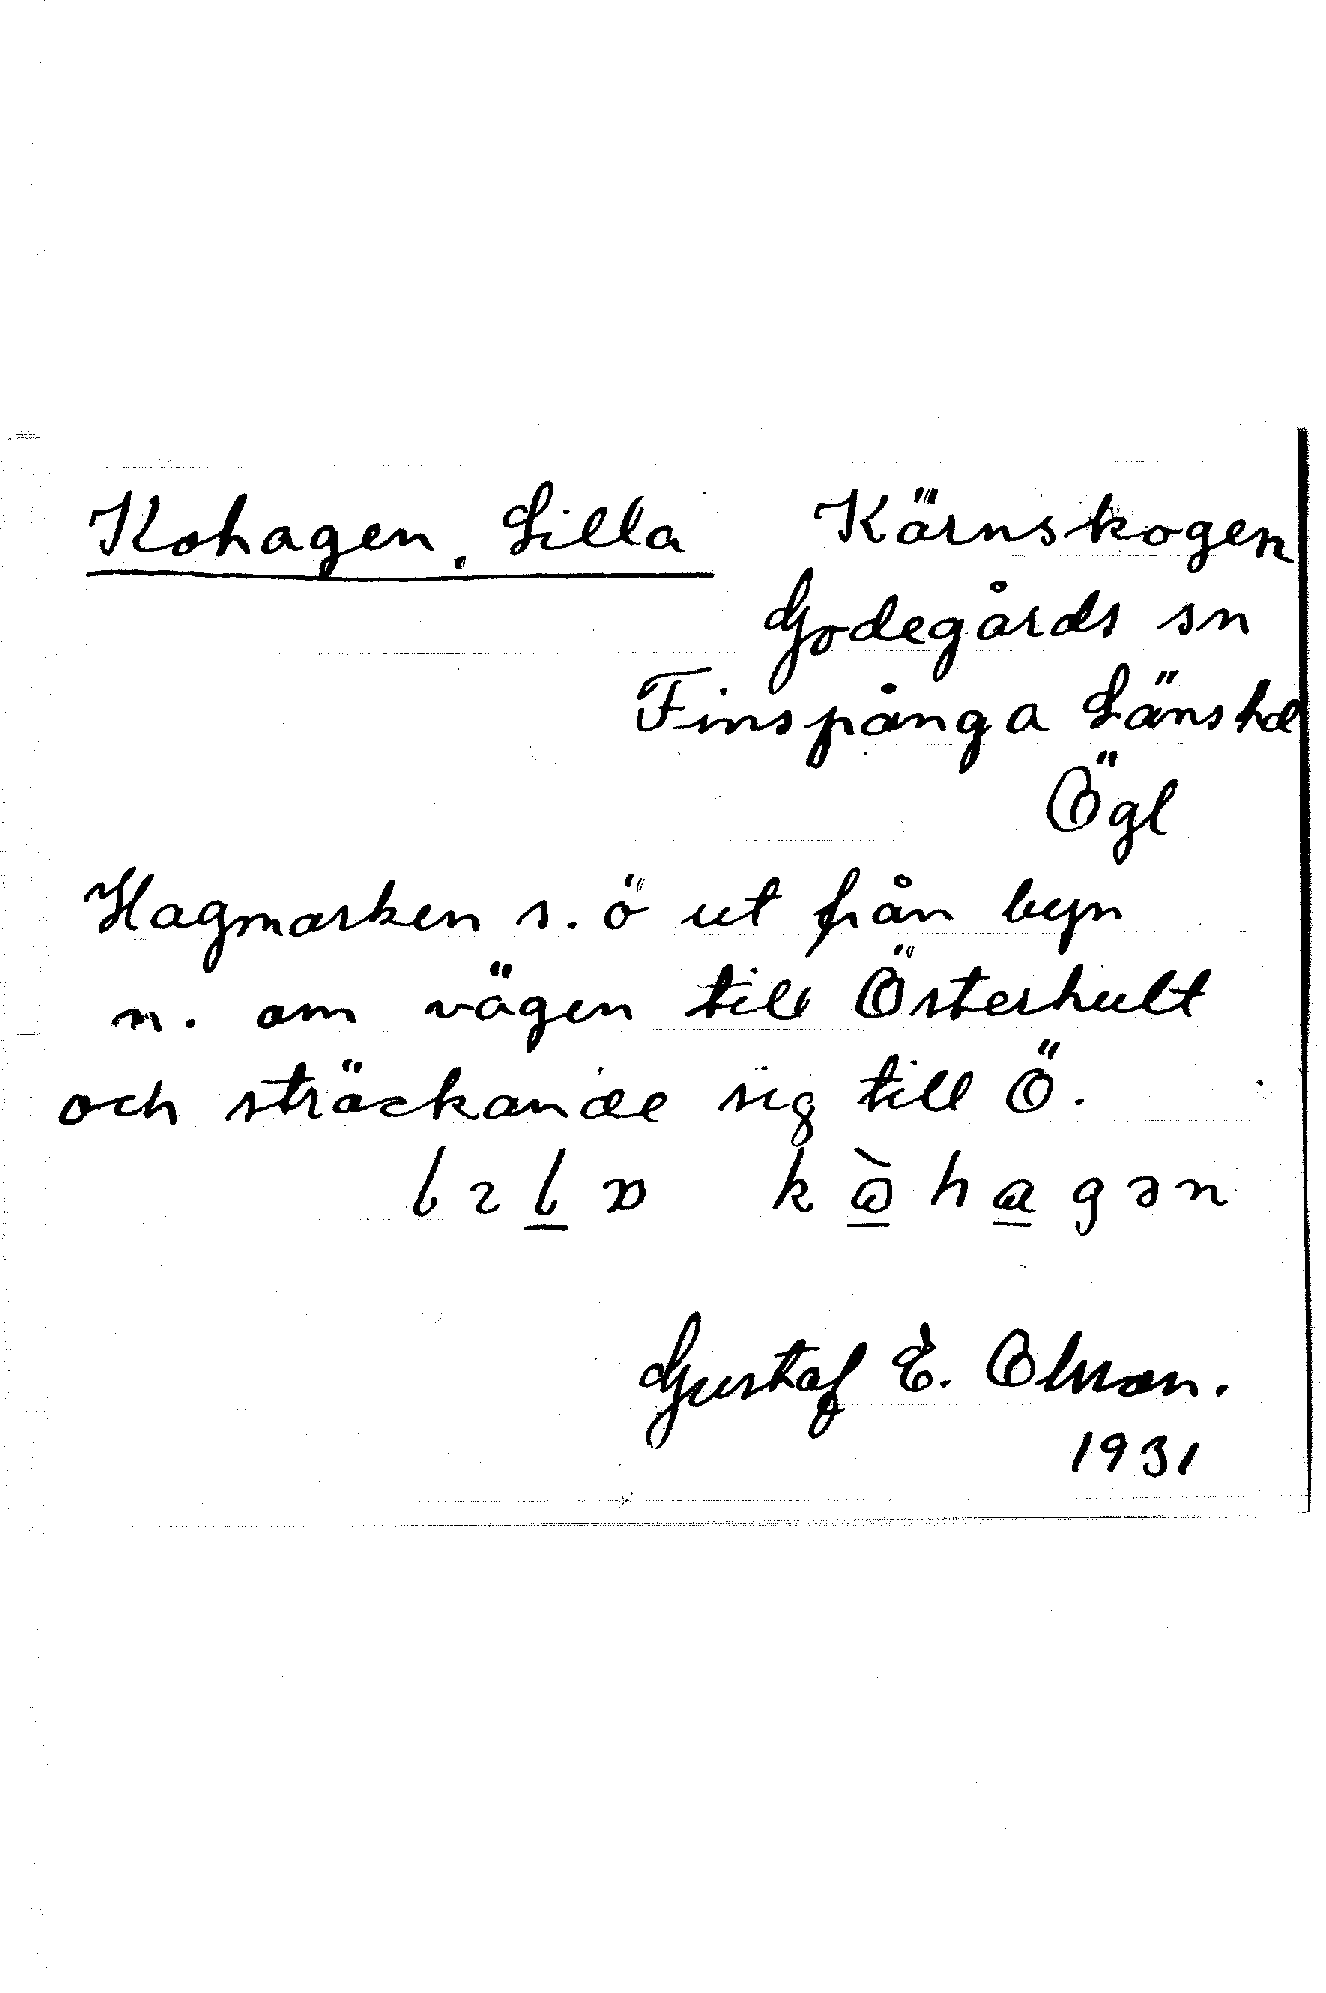 Kohagen, Lilla Kärnskogen
Godegårds sn
Finspånga Länshd
Ögl
Hagmarken s. ö ut från byn
n. om vägen till Österhult
och sträckande sig till Ö.
Gustaf E. Olsson.
1931